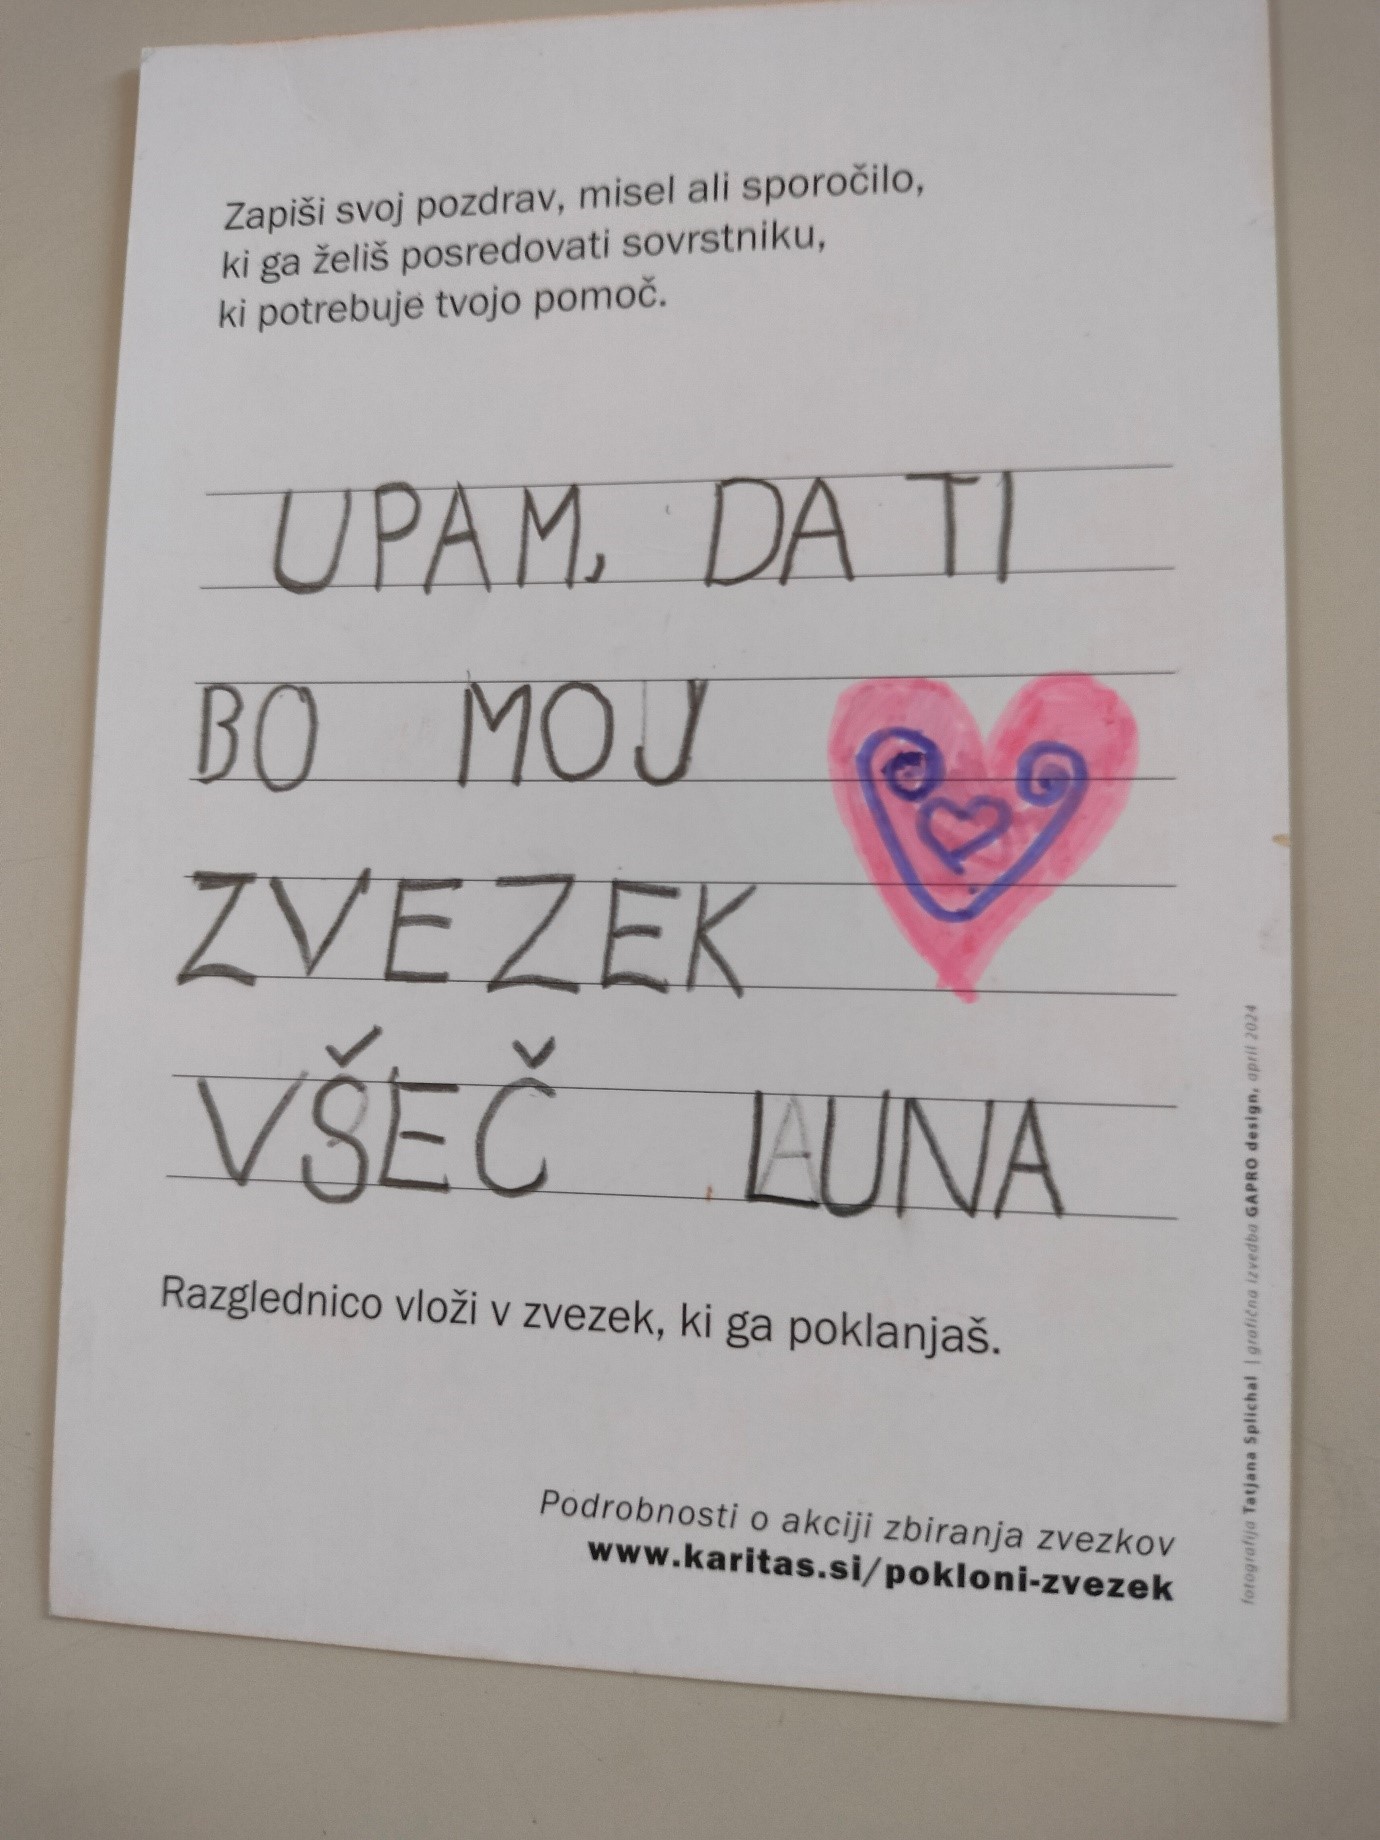 Zapiši svoj pozdrav, misel ali sporočilo,
ki ga želiš posredovati sovrstniku,
ki potrebuje tvojo pomoč.
UPAM, DA TI
BO MOJ
ZVEZEK
VŠEČ LUNA
Razglednico vloži v zvezek, ki ga poklanjaš.
Podrobnosti o akciji zbiranja zvezkov
www.karitas.si/pokloni-zvezek
fotografija Tatjana Splichal | grafična izvedba GAPRO design, april 2024